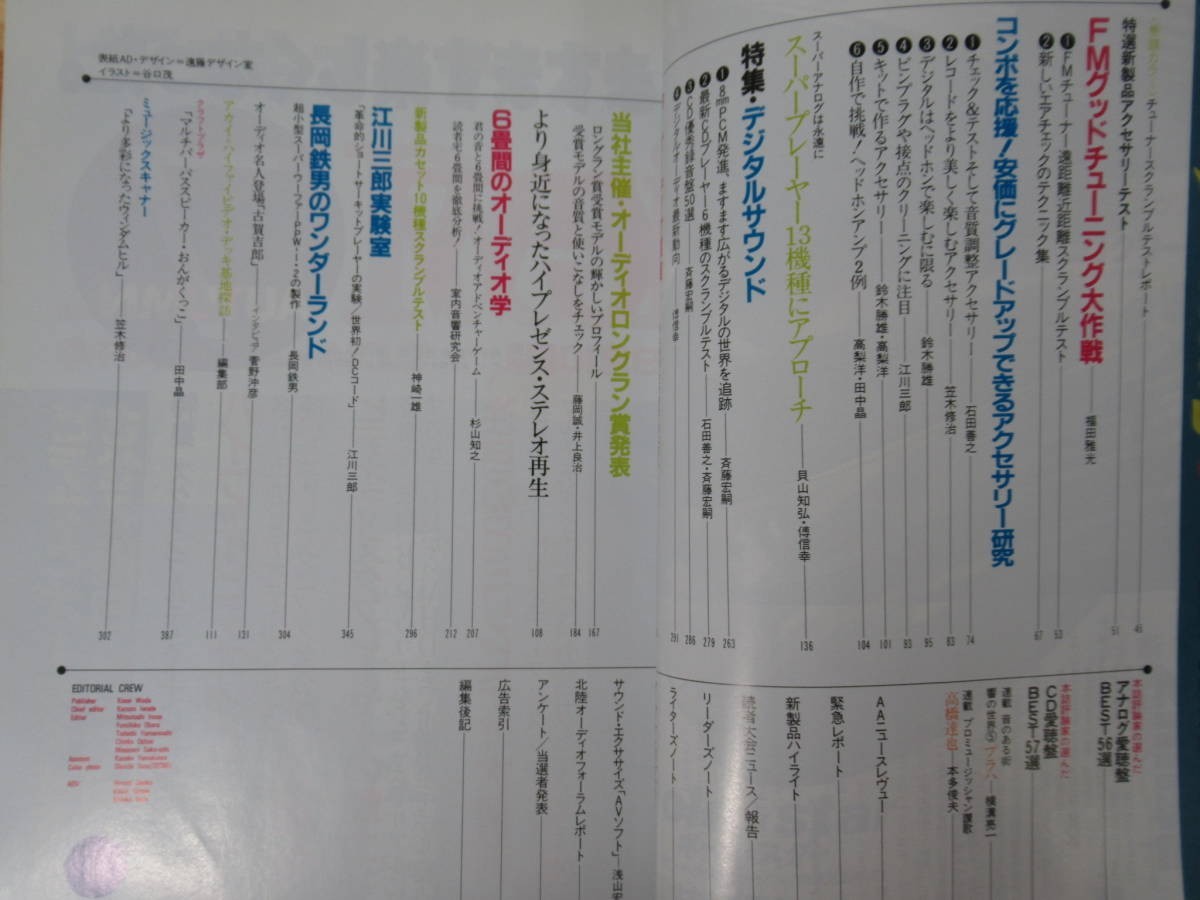 チューナースクランブルテストレポート 45
特選新製品アクセサリーテスト 51
FMグッドチューニング大作戦 福田雅光
❶FMチューナー遠距離近距離スクランブルテスト 53
❷新しいエアチェックのテクニック集 67
コンポを応援！安価にグレードアップできるアクセサリー研究
❶チェック&テストそして音質調整アクセサリー 石田善之 74
❷レコードをより美しく楽しむアクセサリー 笠木修治 83
❸デジタルはヘッドホンで楽しむに限る 鈴木勝雄 95
❹ピンプラグや接点のクリーニングに注目 江川三郎 93
❺キットで作るアクセサリー 鈴木勝雄・高梨洋 101
❻自作で挑戦！ヘッドホンアンプ2例 高梨洋・田中晶 104
スーパーアナログは永遠に
スーパープレーヤー13機種にアプローチ 貝山知弘・傅信幸 136
特集・デジタルサウンド
❶8mmPCM発進、ますます広がるデジタルの世界を追跡 斉藤宏嗣 263
❷最新CDプレーヤー6機種のスクランブルテスト 石田善之・斉藤宏嗣 279
❸CD優秀録音盤50選 斉藤宏嗣 286
❹デジタルオーディオ最新動向 傅信幸 291
当社主催・オーディオロングラン賞発表
ロングラン賞受賞モデルの輝かしいプロフィール 167
受賞モデルの音質と使いこなしをチェック 藤岡誠・井上良治 184
より身近になったハイプレゼンス・ステレオ再生 108
6畳間のオーディオ学
君の音と6畳間に挑戦！オーディオアドベンチャーゲーム 杉山知之 207
読者宅6畳間を徹底分析！ 室内音響研究会 212
新製品カセット10機種スクランブルテスト 神崎一雄 296
江川三郎実験室
「革命的ショートサーキットプレーヤーの実験/世界初！DCコード」 江川三郎 345
長岡鉄男のワンダーランド
超小型スーパーウーファーPPW-1・2の製作 長岡鉄男 304
オーディオ名人登場「古賀吉郎」 インタビュア 菅野沖彦 131
アカイ・ハイファイビデオ・デッキ基地探訪 編集部 111
クラフトプラザ
「マルチパーパススピーカー・おんがくっこ」 田中晶 387
ミュージックスキャナー
「より多彩になったウィンダムヒル」 笠木修治 302
表紙AD・デザイン=遠藤デザイン室
イラスト=谷口茂
本誌評論家の選んだ
アナログ愛聴盤
BEST56選
本誌評論家の選んだ
CD愛聴盤
BEST57選
連載 音のある街
響の世界 プラハ 横溝亮一
連載 プロミュージッシャン讃歌
高橋達也 本多俊夫
AAニュースレヴュー
緊急レポート
新製品ハイライト
読者大会ニュース/報告
リーダーズノート
ライターズノート
サウンド・エクササイズ「AVソフト」 浅山安
北陸オーディオフォーラムレポート
アンケート/当選者発表
広告索引
編集後記
EDITORIAL CREW
Publisher
Chief editor
Editor
Assistant
ADV